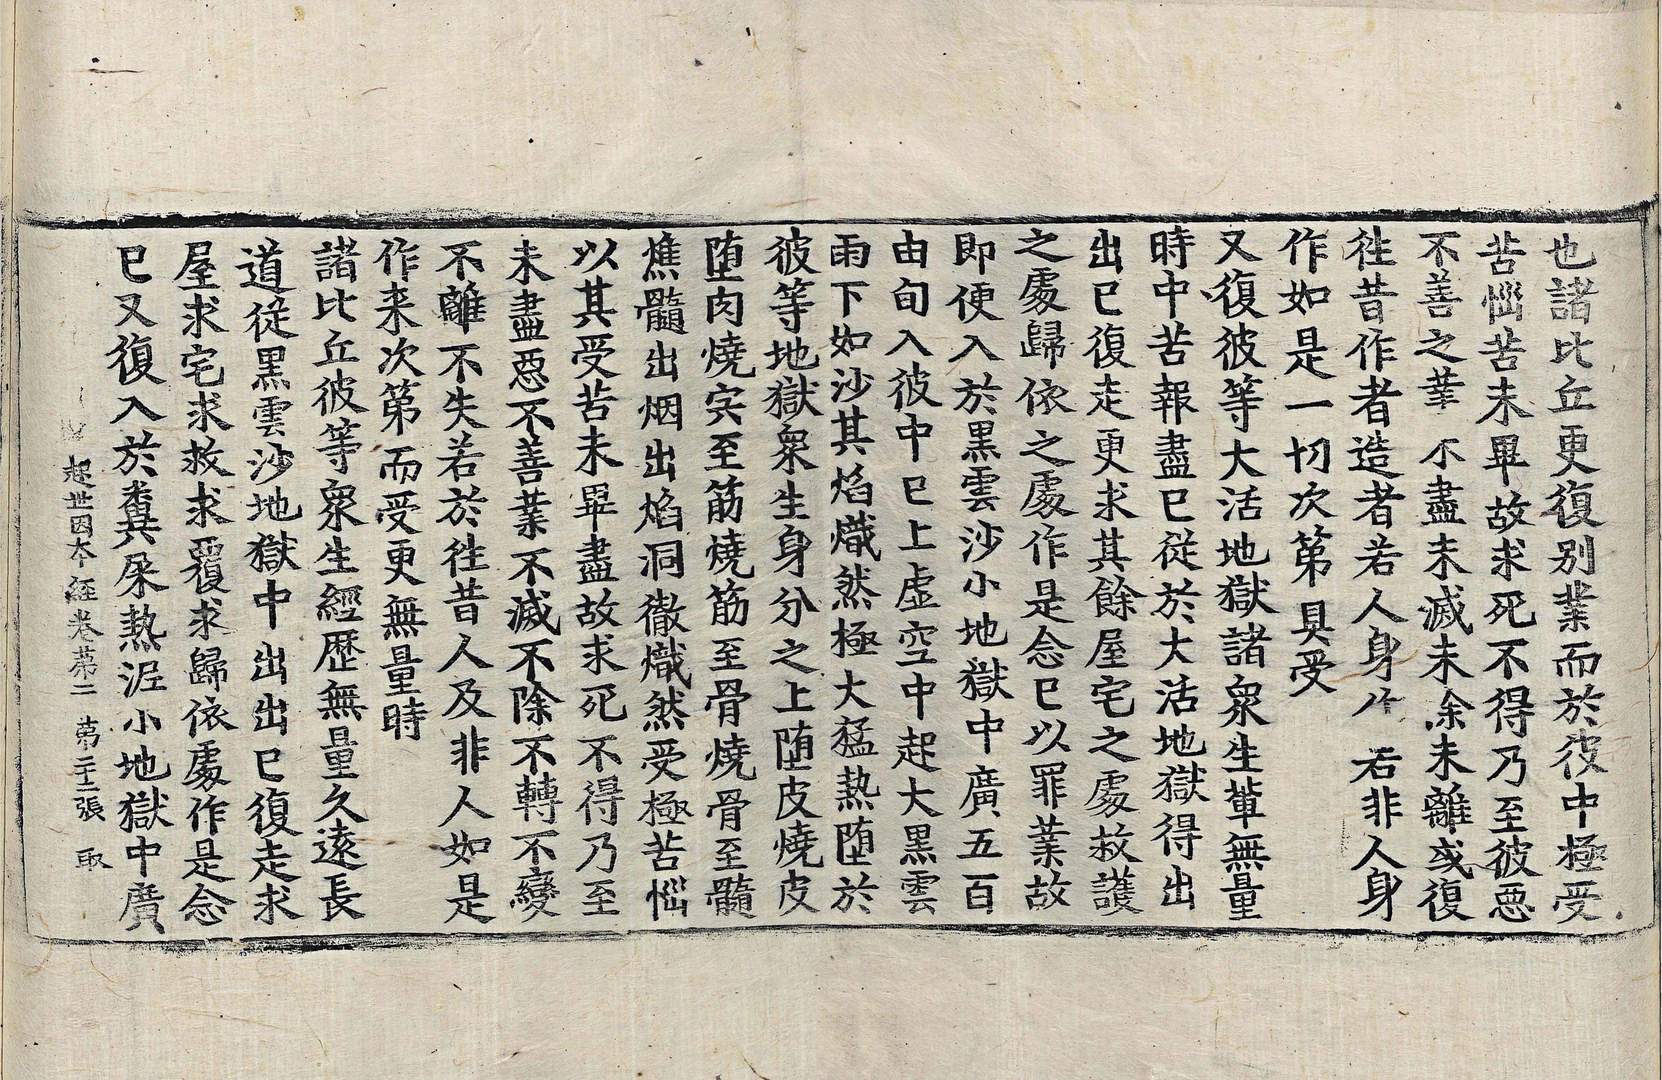 也諸比丘更復別業而於彼中極受
苦惱苦未畢故求死不得乃至彼惡
不善之業不盡未滅未除未離或復
往昔作者造者若人身作若非人身
作如是一切次第具受
又復彼等大活地獄諸衆生軰無量
時中苦報盡已從於大活地獄得出
出已復走更求其餘屋宅之處救護
之處歸依之處作是念已以罪業故
即便入於黑雲沙小地獄中廣五百
由旬入彼中已上虛空中起大黑雲
雨下如沙其焰熾然極大猛熱墮於
彼等地獄衆生身分之上墮皮燒皮
墮肉燒宍至筋燒筋至骨燒骨至髓
燋髓出烟出焰洞徹熾然受極苦惱
以其受苦未畢盡故求死不得乃至
未盡惡不善業不滅不除不轉不變
不離不失若於往昔人及非人如是
作来次第而受更無量時
諸比丘彼等衆生經歷無量久遠長
道從黑雲沙地獄中出出已復走求
屋求宅求救求覆求歸依處作是念
已又復入於糞屎熱泥小地獄中廣
起世因本經卷第二 第二十二張 取